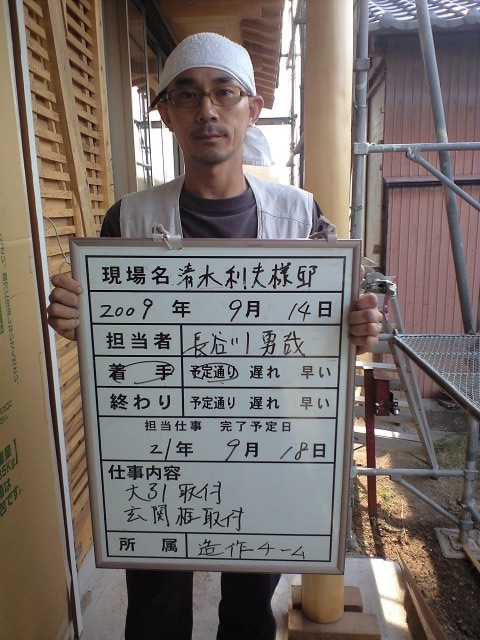 現場名 清水利夫様邸
2009 年 9月 14日
担当者 長谷川 勇哉
着手 予定通り 遅れ 早い
終わり 予定通り 遅れ 早い
担当仕事 完了予定日
21年 9月 18日
仕事内容
大引取付
玄関框取付
所属 造作チーム